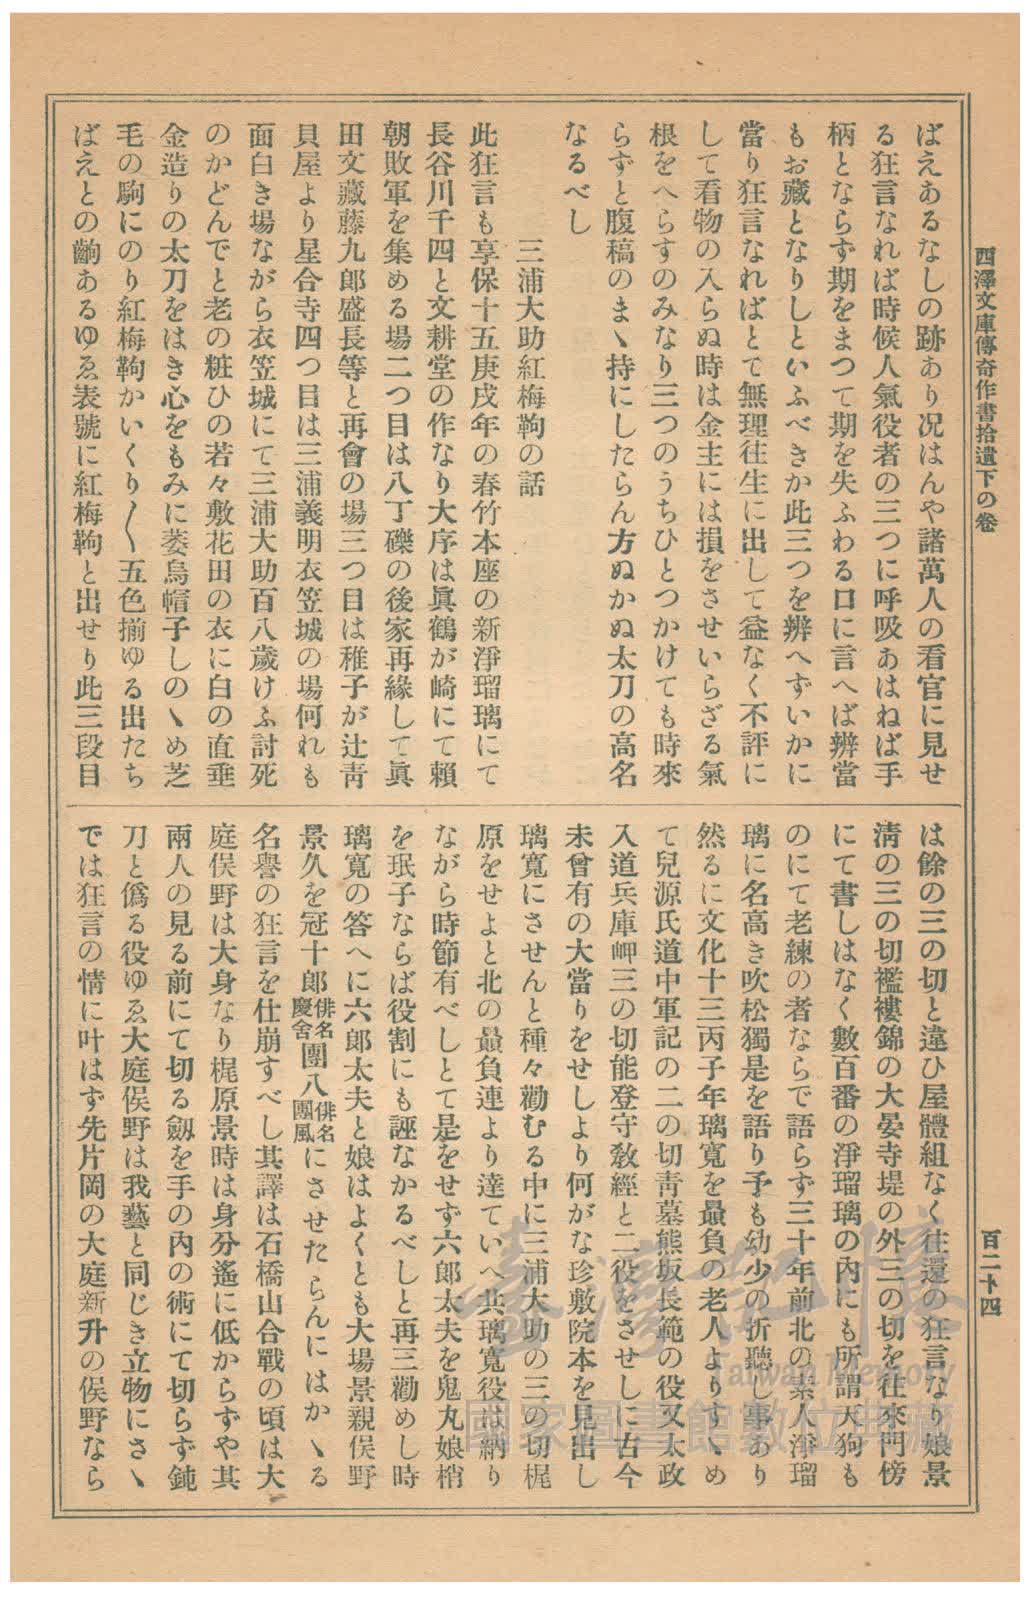 西澤文庫傳奇作書拾遺下の卷
百二十四
ばえあるなしの跡あり况はんや諸萬人の看官に見せ
る狂言なれば時候人氣役者の三つに呼吸あはねば手
柄とならず期をまつて期を失ふわる口に言へば辨當
もお藏となりしといふべきか此三つを辨へずいかに
當り狂言なればとて無理往生に出して益なく不評に
して看物の入らぬ時は金主には損をさせいらざる氣
根をへらすのみなり三つのうちひとつかけても時來
らずと腹稿のまゝ持にしたらん方ぬかぬ太刀の高名
なるべし
三浦大助紅梅駒の話
此狂言も享保十五庚戌年の春竹本座の新淨瑠璃にて
長谷川千四と文耕堂の作なり大序は眞鶴が崎にて賴
朝敗軍を集める場二つ目は八丁礫の後家再緣して眞
田文藏藤九郎盛長等と再會の場三つ目は稚子が辻靑
貝屋より星合寺四つ目は三浦義明衣笠城の場何れも
面白き場ながら衣笠城にて三浦大助百八歲けふ討死
のかどんでと老の粧ひの若々敷花田の衣に白の直垂
金造りの太刀をはき心をもみに萎烏帽子しのゝめ芝
毛の駒にのり紅梅駒かいくり〳〵五色揃ゆる出たち
ばえとの齣あるゆゑ表號に紅梅駒と出せり此三段目
は餘の三の切と違ひ屋體組なく往還の狂言なり娘景
淸の三の切襤褸錦の大晏寺堤の外三の切を往來門傍
にて書しはなく數百番の淨瑠璃の內にも所謂天狗も
のにて老練の者ならで語らず三十年前北の素人淨瑠
璃に名高き吹松獨是を語り予も幼少の折聽し事あり
然るに文化十三丙子年璃寬を最負の老人よりすゝめ
て兒源氏道中軍記の二の切靑墓熊坂長範の役又太政
入道兵庫岬三の切能登守敎經と二役をさせしに古今
未曾有の大當りをせしより何がな珍敷院本を見出し
璃寬にさせんと種々勸むる中に三浦大助の三の切梶
原をせよと北の最負連より達ていへ共璃寬役は納り
ながら時節有べしとて是をせず六郎太夫を鬼丸娘梢
を珉子ならば役割にも誣なかるべしと再三勸めし時
璃寬の答へに六郎太夫と娘はよくとも大場景親俣野
景久を冠十郎俳名慶舍團八俳名團風にさせたらんにはかゝる
名譽の狂言を仕崩すべし其譯は石橋山合戰の頃は大
庭俣野は大身なり梶原景時は身分遙に低からずや其
兩人の見る前にて切る劔を手の內の術にて切らず鈍
刀と僞る役ゆゑ大庭俣野は我藝と同じき立物にさゝ
では狂言の情に叶はず先片岡の大庭新升の俣野なら
臺灣記憶
Taiwan Memory
國家圖書館數位典藏